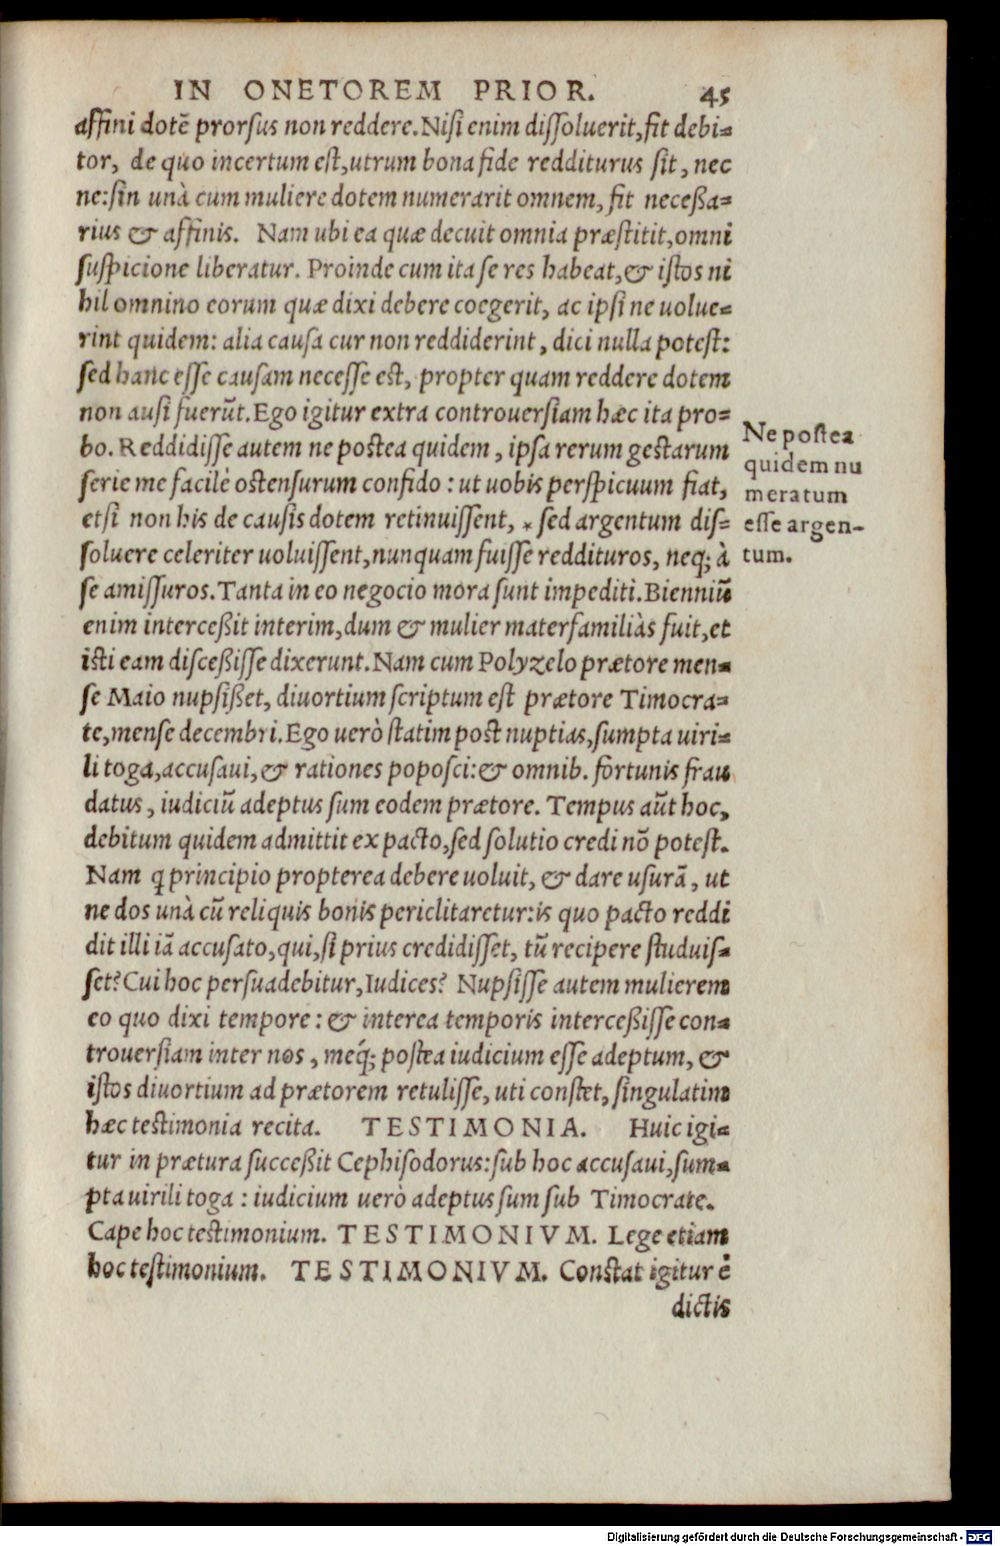 IN ONETOREM PRIOR. 45
affini dotē prorsus non reddere. Nisi enim dissoluerit, fit debi=
tor, de quo incertum est, utrum bona fide redditurus sit, nec
ne: sin unà cum muliere dotem numerarit omnem, fit necessa=
rius & affinis. Nam ubi ea quæ decuit omnia præstitit, omni
suspicione liberatur. Proinde cum ita se res habeat, & istos ni
hil omnino eorum quæ dixi debere coegerit, ac ipsi ne uolue=
rint quidem: alia causa cur non reddiderint, dici nulla potest:
sed hanc esse causam necesse est, propter quam reddere dotem
non ausi fuerūt. Ego igitur extra controuersiam hæc ita pro=
bo. Reddidisse autem ne postea quidem, ipsa rerum gestarum
serie me facilè ostensurum confido: ut uobis perspicuum fiat,
etsi non his de causis dotem retinuissent, * sed argentum dis=
soluere celeriter uoluissent, nunquam fuisse reddituros, neq; à
se amissuros. Tanta in eo negocio mora sunt impediti. Bienniū
enim intercessit interim, dum & mulier materfamiliàs fuit, et
isti eam discessisse dixerunt. Nam cum Polyzelo prætore men=
se Maio nupsisset, diuortium scriptum est prætore Timocra=
te, mense decembri. Ego uerò statim post nuptias, sumpta uiri=
li toga, accusaui, & rationes poposci: & omnib. fortunis frau
datus, iudiciū adeptus sum eodem prætore. Tempus aūt hoc,
debitum quidem admittit ex pacto, sed solutio credi nō potest.
Nam q principio propterea debere uoluit, & dare usurā, ut
ne dos unà cū reliquis bonis periclitaretur: is quo pacto reddi
dit illi iā accusato, qui, si prius credidisset, tū recipere studuis=
set? Cui hoc persuadebitur, Iudices? Nupsisse autem mulierem
eo quo dixi tempore: & interea temporis intercessisse con=
trouersiam inter nos, meq́; postea iudicium esse adeptum, &
istos diuortium ad prætorem retulisse, uti constet, singulatim
hæc testimonia recita. TESTIMONIA. Huic igi=
tur in prætura successit Cephisodorus: sub hoc accusaui, sum=
pta uirili toga: iudicium uerò adeptus sum sub Timocrate.
Cape hoc testimonium. TESTIMONIVM. Lege etiam
hoc testimonium. TESTIMONIVM. Constat igitur ē
dictis
Ne postea
quidem nu
meratum
esse argen-
tum.
Digitalisierung gefördert durch die Deutsche Forschungsgemeinschaft - DFG